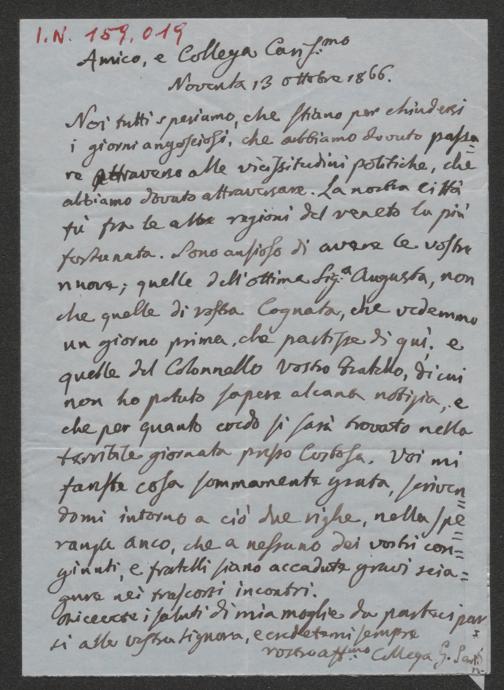 I.N. 159.019
Amico, e Collega Cariss.mo
Noventa 13 ottobre 1866.
Noi tutti speriamo, che stiano per chiudersi
i giorni angosciosi, che abbiamo dovuto passa=
re attraverso alle vicissitudini politiche, che
abbiamo dovuto attraversare. La nostra città
fù fra le altre regioni del veneto la più
fortunata. Sono ansioso di avere le vostre
nuove; quelle dell'ottima Sig.a Augusta, non
che quelle di vostra Cognata, che vedemmo
un giorno prima, che partisse di quì, e
quelle del Colonnello vostro Fratello, di cui
non ho potuto sapere alcuna notizia, e
che per quanto credo si sarà trovato nella
terribile giornata presso Custoza. Voi mi
fareste cosa sommamente grata, scriven=
domi intorno a ciò due righe, nella spe=
ranza anco, che a nessuno dei vostri con=
giunti, e fratelli siano accadute gravi scia=
gure nei trascorsi incontri.
Ricevete i saluti di mia moglie da partecipar
si alla vostra signora, e credetemi sempre
vostro aff.mo Collega G.